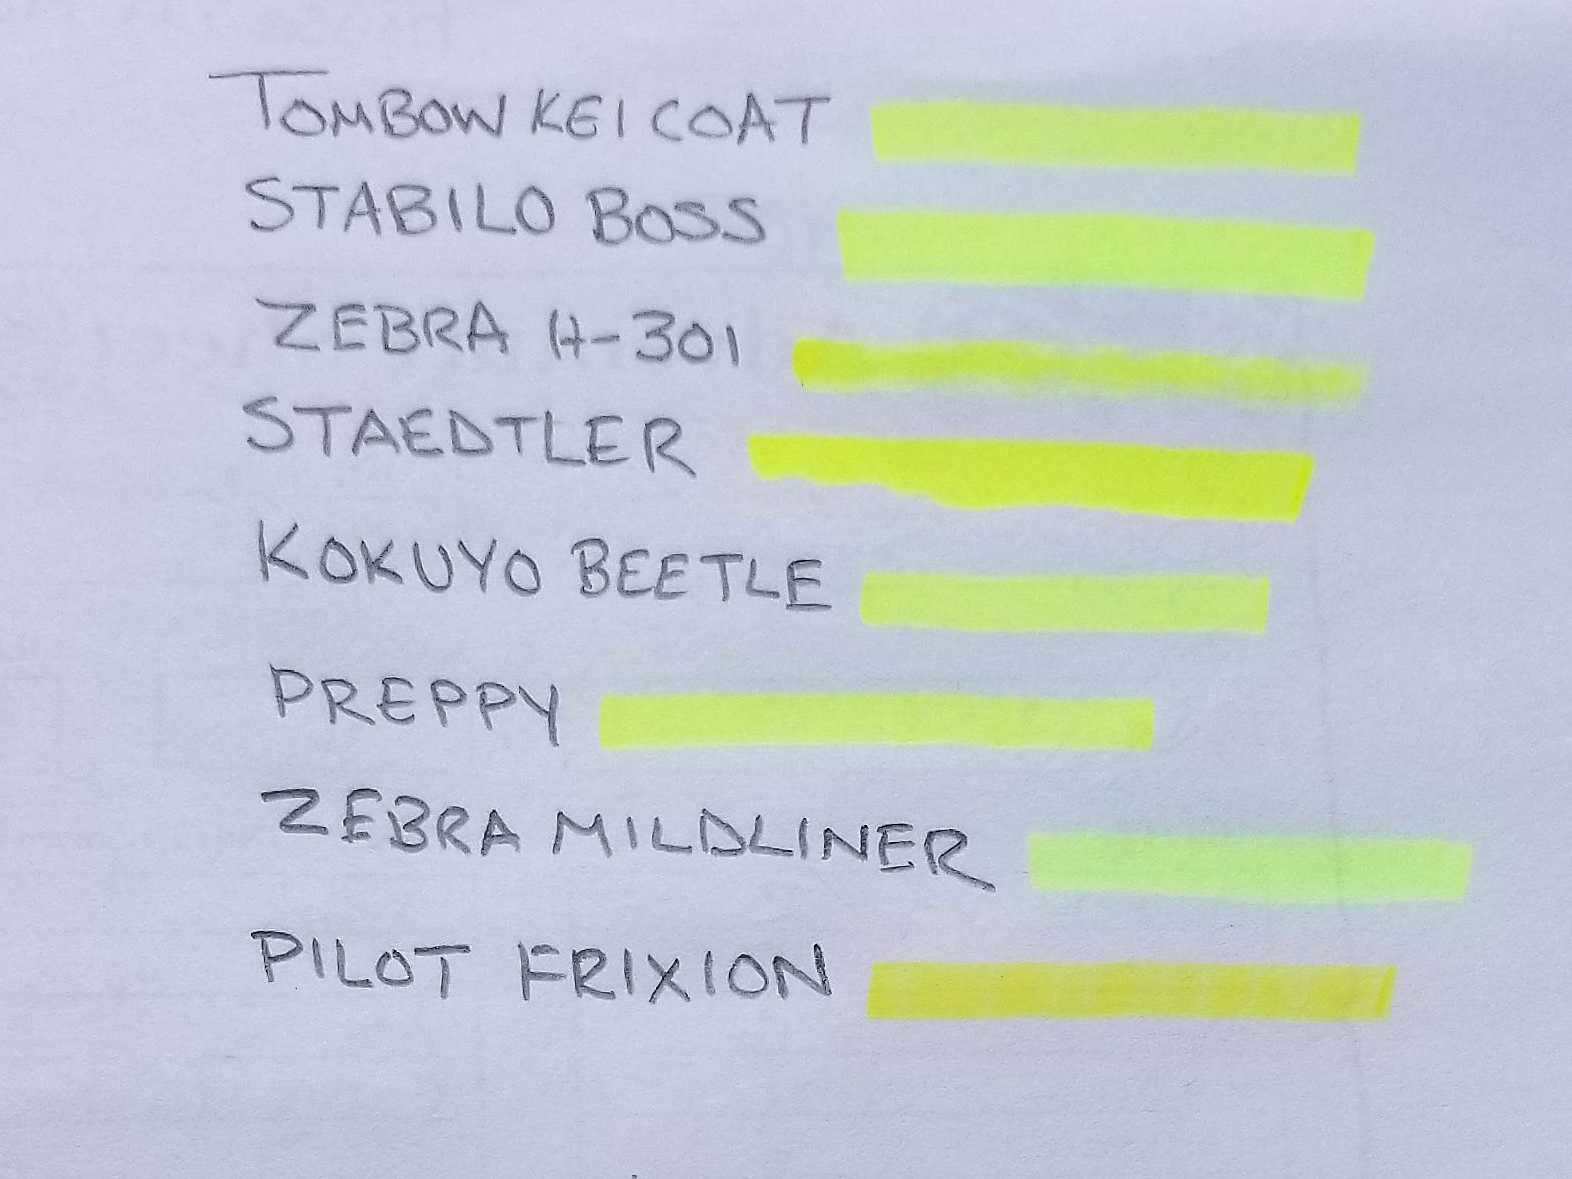 TOMBOW KEI COAT
STABILO BOSS
ZEBRA H-301
STAEDTLER
KOKUYO BEETLE
PREPPY
ZEBRA MILDLINER
PILOT FRIXION